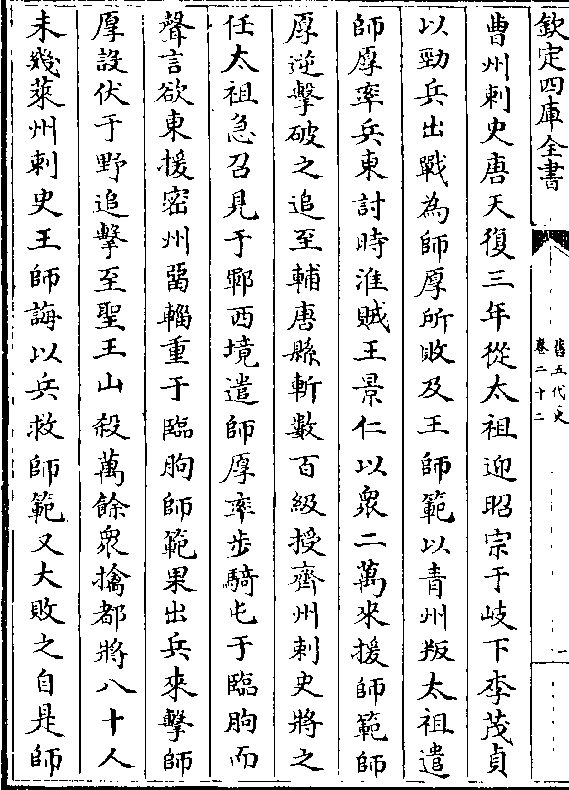 欽定四庫全書
舊五代史
卷二十二
二
曹州刺史唐天復三年從太祖迎昭宗于岐下李茂貞
以勁兵出戰為師厚所敗及王師範以青州叛太祖遣
師厚率兵東討時淮賊王景仁以衆二萬來援師範師
厚逆擊破之追至輔唐縣斬數百級授齊州刺史將之
任太祖急召見于鄆西境遣師厚率步騎屯于臨朐而
聲言欲東援密州留輜重于臨朐師範果出兵來擊師
厚設伏于野追擊至聖王山殺萬餘衆擒都將八十人
未幾萊州刺史王師誨以兵救師範又大敗之自是師